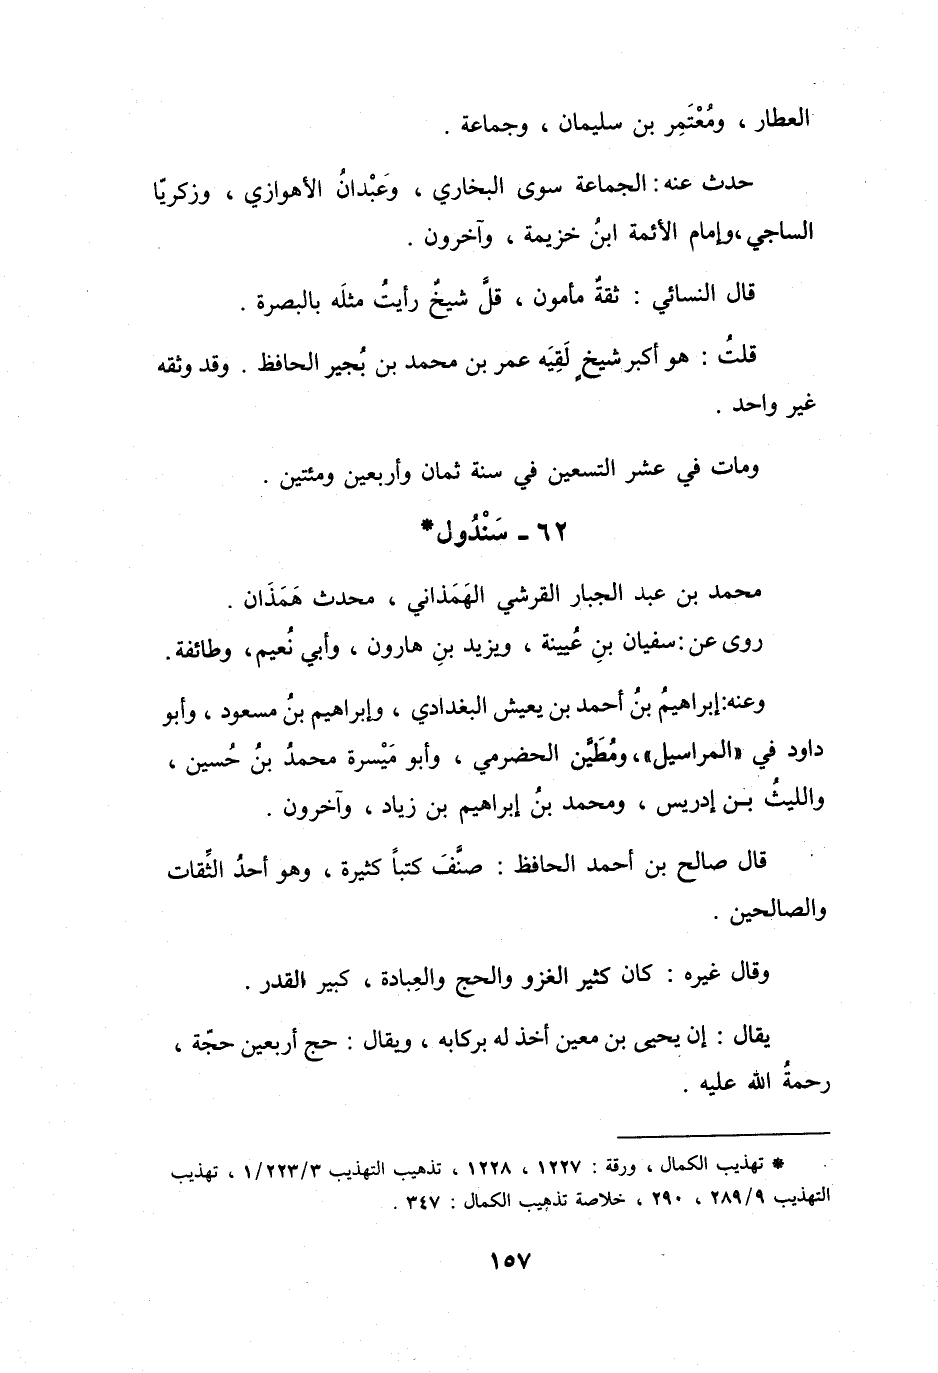 العطار ، ومُعْتَمِر بن سليمان ، وجماعة .
حدث عنه : الجماعة سوى البخاري ، وَعَبْدانُ الأهوازي ، وزكريّا
الساجي ، وإمام الأئمة ابنُ خزيمة ، وآخرون .
قال النسائي : ثقةٌ مأمون ، قلَّ شيخٌ رأيتُ مثلَه بالبصرة .
قلتُ : هو أكبر شيخٍ لَقِيَه عمر بن محمد بن بُجير الحافظ . وقد وثقه
غير واحد .
ومات في عشر التسعين في سنة ثمان وأربعين ومئتين .
٦٢ ـ سَنْدُول*
محمد بن عبد الجبار القرشي الهَمَذاني ، محدث هَمَذَان .
روى عن : سفيان بنِ عُيينة ، ويزيد بنِ هارون ، وأبي نُعيم ، وطائفة .
وعنه : إبراهيمُ بنُ أحمد بن يعيش البغدادي ، وإبراهيم بنُ مسعود ، وأبو
داود في «المراسيل» ، ومُطَيَّن الحضرمي ، وأبو مَيْسرة محمدُ بنُ حُسين ،
والليثُ بـن إدريس ، ومحمد بنُ إبراهيم بن زياد ، وآخرون .
قال صالح بن أحمد الحافظ : صنَّفَ كتباً كثيرة ، وهو أحدُ الثِّقات
والصالحين .
وقال غيره : كان كثير الغزو والحج والعِبادة ، كبير القدر .
يقال : إن يحيى بن معين أخذ له بركابه ، ويقال : حج أربعين حجّة ،
رحمةُ الله عليه .
* تهذيب الكمال ، ورقة : ١٢٢٧ ، ١٢٢٨ ، تذهيب التهذيب ١/٢٢٣/٣ ، تهذيب
التهذيب ٢٨٩/٩ ، ٢٩٠ ، خلاصة تذهيب الكمال : ٣٤٧ .
١٥٧